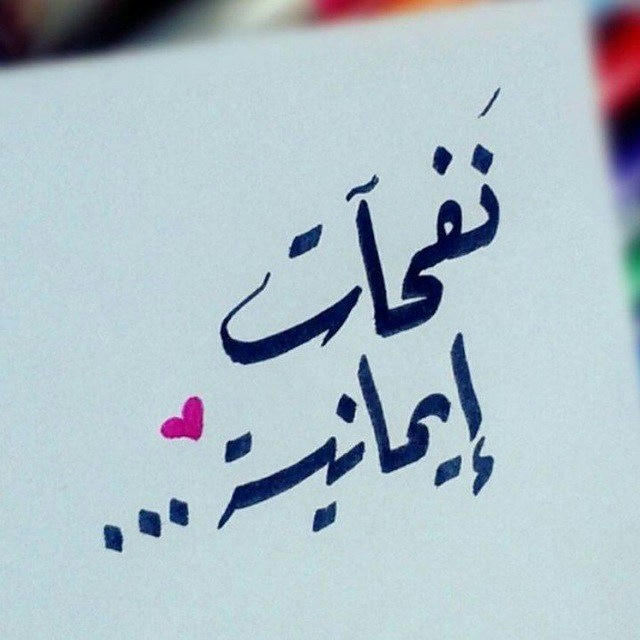 نَفحآت
إيمانية ...